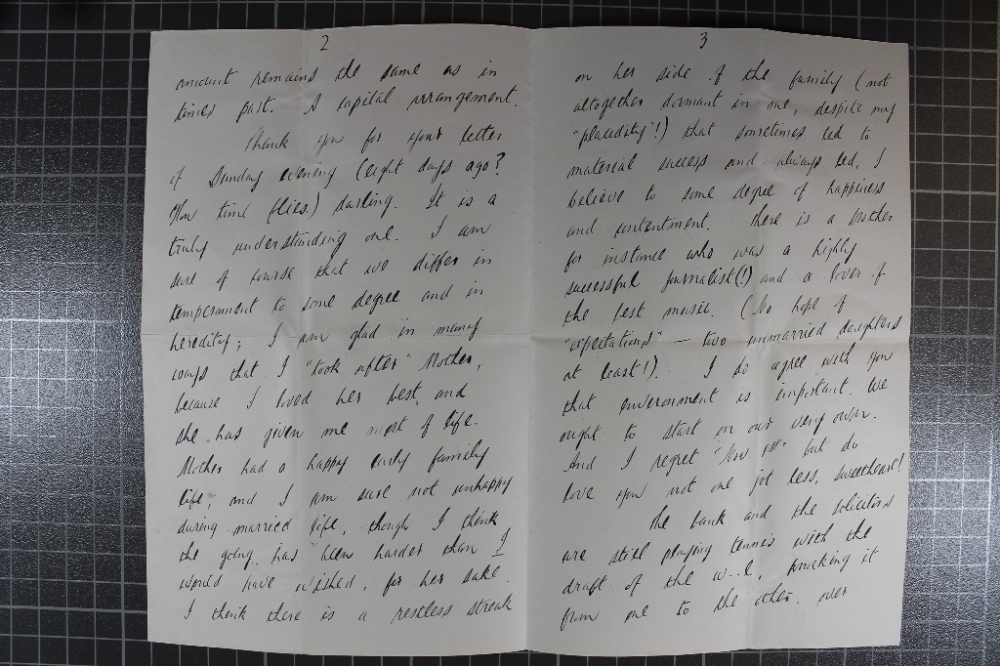 2
amount remains the same as in
times past. A capital arrangement.
Thank you for your letter
of Sunday evening (eight days ago?
How time flies.) darling. It is a
truly understanding one. I am
sure of course that we differ in
temperament to some degree and in
heredity; I am glad in many
ways that I "took after" Mother,
because I loved her best, and
she has given me most of life.
Mother had a happy early family
life, and I am sure not unhappy
during married life, though I think
the going has been harder than I
would have wished, for her sake.
I think there is a restless streak
3
on her side of the family (not
altogether dormant in me, despite my
"placidity"!) that sometimes led to
material success and always led, I
believe to some degree of happiness
and contentment. There is a brother
for instance who was a highly
successful journalist(!) and a lover of
the best music. (No hope of
"expectations" — two unmarried daughters
at least!). I do agree with you
that environment is important. We
ought to start on our very own.
And I regret but do
love you not one jot less, sweetheart!
The bank and the solicitors
are still playing tennis with the
draft of the w...l, knocking it
from one to the other. over